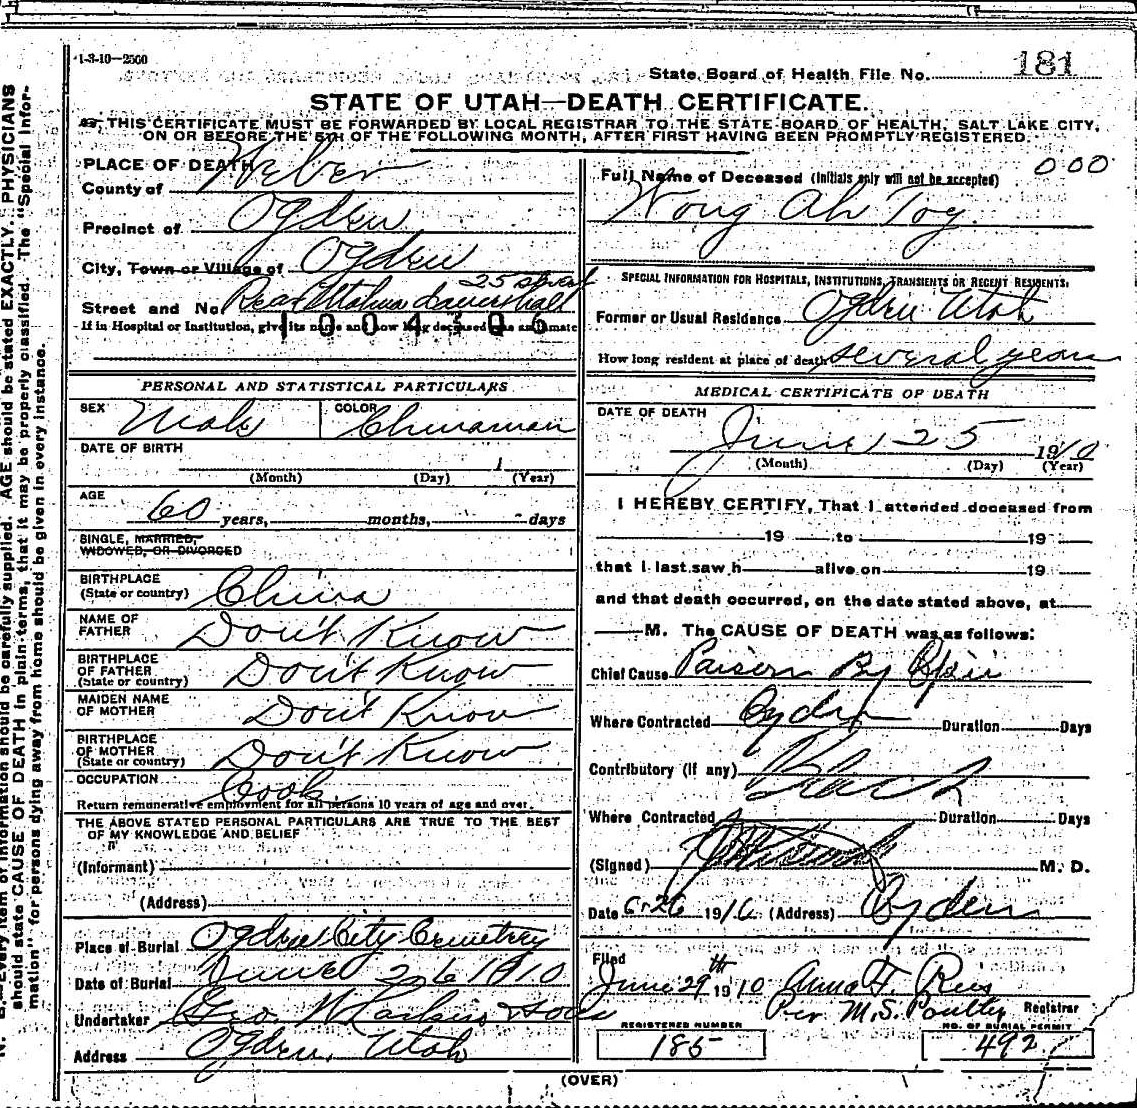 1-3-10—2500
State Board of Health File No. 181
STATE OF UTAH—DEATH CERTIFICATE.
THIS CERTIFICATE MUST BE FORWARDED BY LOCAL REGISTRAR TO THE STATE BOARD OF HEALTH, SALT LAKE CITY,
ON OR BEFORE THE 5TH OF THE FOLLOWING MONTH, AFTER FIRST HAVING BEEN PROMPTLY REGISTERED.
PLACE OF DEATH
County of Weber
Precinct of Ogden
City, Town or Village of Ogden
25 street
Street and No. Rear
If in Hospital or Institution, give its name and how long deceased was an inmate
1004 06
PERSONAL AND STATISTICAL PARTICULARS
SEX Male COLOR Chinaman
DATE OF BIRTH
1
(Month) (Day) (Year)
AGE
60 years, months, days
SINGLE, MARRIED,
WIDOWED, OR DIVORCED
BIRTHPLACE
(State or country) China
NAME OF
FATHER Don't Know
BIRTHPLACE
OF FATHER
(State or country) Don't Know
MAIDEN NAME
OF MOTHER Don't Know
BIRTHPLACE
OF MOTHER
(State or country) Don't Know
OCCUPATION Cook
Return remunerative employment for all persons 10 years of age and over.
THE ABOVE STATED PERSONAL PARTICULARS ARE TRUE TO THE BEST
OF MY KNOWLEDGE AND BELIEF
(Informant)
(Address)
Place of Burial Ogden City Cemetery
Date of Burial June 26 1910
Undertaker Geo. W Larkin & Sons
Address Ogden, Utah
000
Full Name of Deceased (Initials only will not be accepted)
Wong Ah Toy.
SPECIAL INFORMATION FOR HOSPITALS, INSTITUTIONS, TRANSIENTS OR RECENT RESIDENTS.
Former or Usual Residence Ogden Utah
How long resident at place of death several years
MEDICAL CERTIFICATE OF DEATH
DATE OF DEATH
June 25 1910
(Month) (Day) (Year)
I HEREBY CERTIFY, That I attended deceased from
19 to 19
that I last saw h alive on 19
and that death occurred, on the date stated above, at
M. The CAUSE OF DEATH was as follows:
Chief Cause Poison By
Where Contracted Ogden Duration Days
Contributory (if any)
Where Contracted Duration Days
(Signed) M. D.
Date 6-26 191 (Address) Ogden
Filed
June 29th 1910 Anna F. Ries
Per M.S. Poulter Registrar
REGISTERED NUMBER
185
NO. OF BURIAL PERMIT
492
(OVER)
N. B.—Every item of information should be carefully supplied. AGE should be stated EXACTLY. PHYSICIANS
should state CAUSE OF DEATH in plain terms, that it may be properly classified. The "Special Infor-
mation" for persons dying away from home should be given in every instance.